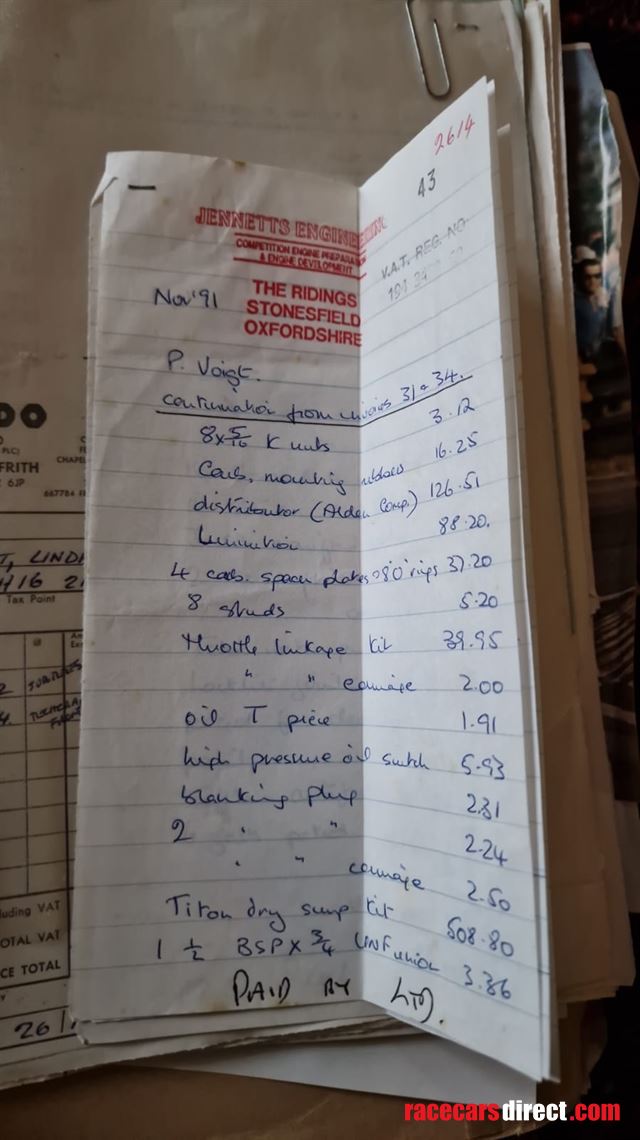 2614
43
JENNETTS ENGINEERING
COMPETITION ENGINE PREPARA
& ENGINE DEVELOPMENT
V.A.T. REG. NO.
THE RIDINGS
STONESFIELD
OXFORDSHIRE
Nov '91
P. Voigt.
continuation from invoices 31 & 34.
8 x 5/16 K nuts 3.12
Carb. mounting rubbers 16.25
distributor (Alden Comp.) 126.51
Lumination 88.20.
4 carb. spacer plates & 8 'O' rings 37.20
8 studs 5.20
throttle linkage kit 39.95
" " carriage 2.00
oil T piece 1.91
high pressure oil switch 5.93
blanking plug 2.31
2 " " 2.24
" " carriage 2.50
Titan dry sump kit 508.80
1 1/2 BSP x 3/4 UNF union 3.36
PAID BY LTD.
DO
PLC)
FRITH
6JP
CHAPEL
667784
T, LINDI
H16 2
Tax Point
@
uding VAT
OTAL VAT
CE TOTAL
26/
racecarsdirect.com